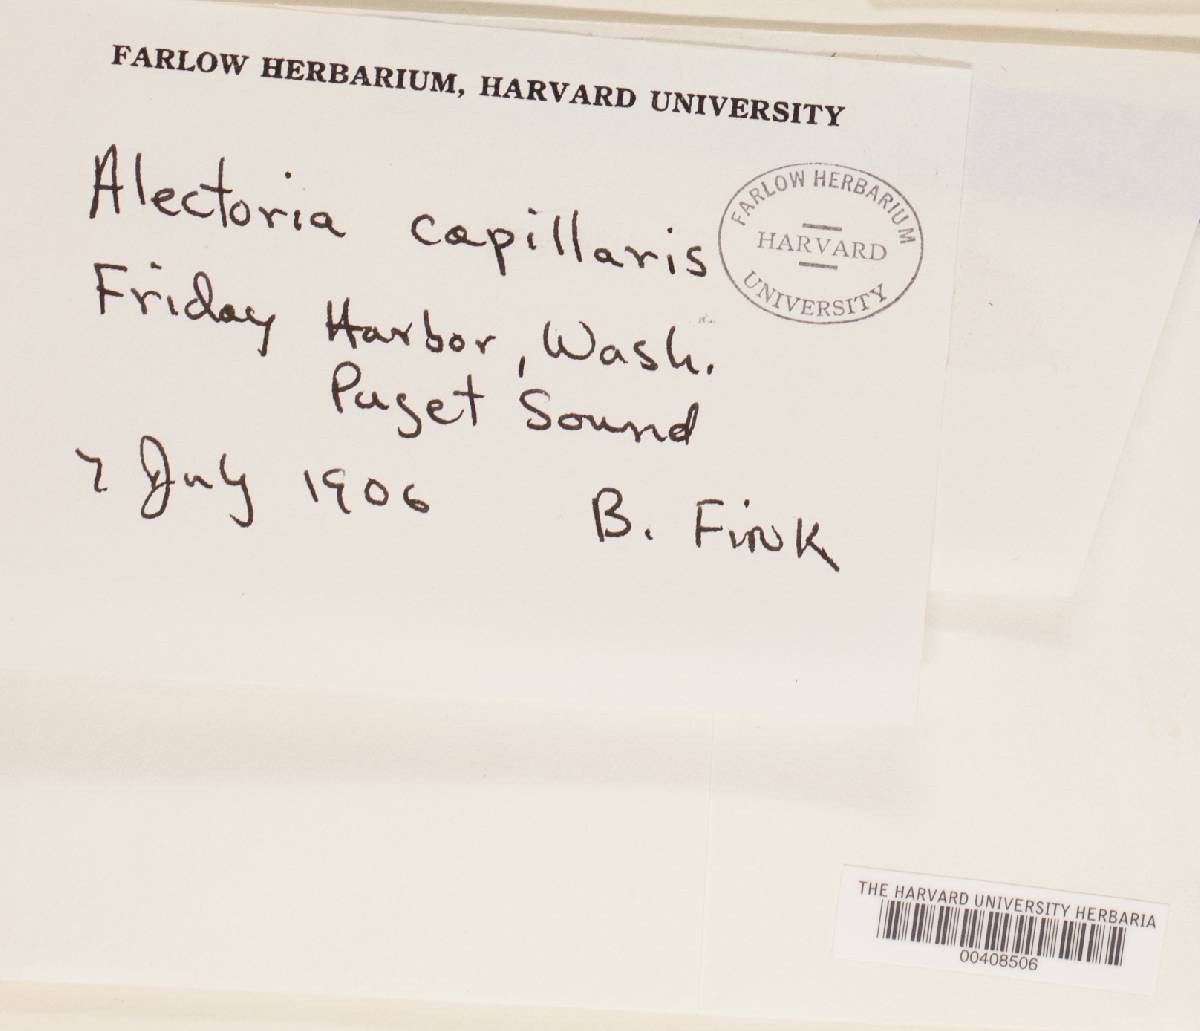 FARLOW HERBARIUM, HARVARD UNIVERSITY
Alectoria capillaris
FARLOW HERBARIUM
HARVARD
UNIVERSITY
Friday Harbor, Wash.
Puget Sound
7 July 1906 B. Fink
THE HARVARD UNIVERSITY HERBARIA
00408506